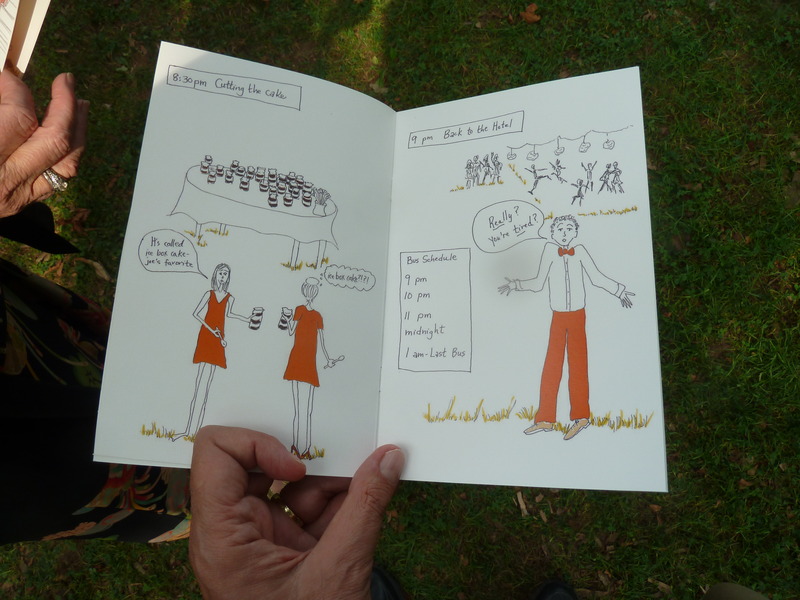 8:30pm Cutting the cake
It's called
ice box cake-
Joe's favorite
ice box cake?!?!
9 pm Back to the Hotel
Really?
You're tired?
Bus Schedule
9 pm
10 pm
11 pm
midnight
1 am-Last Bus